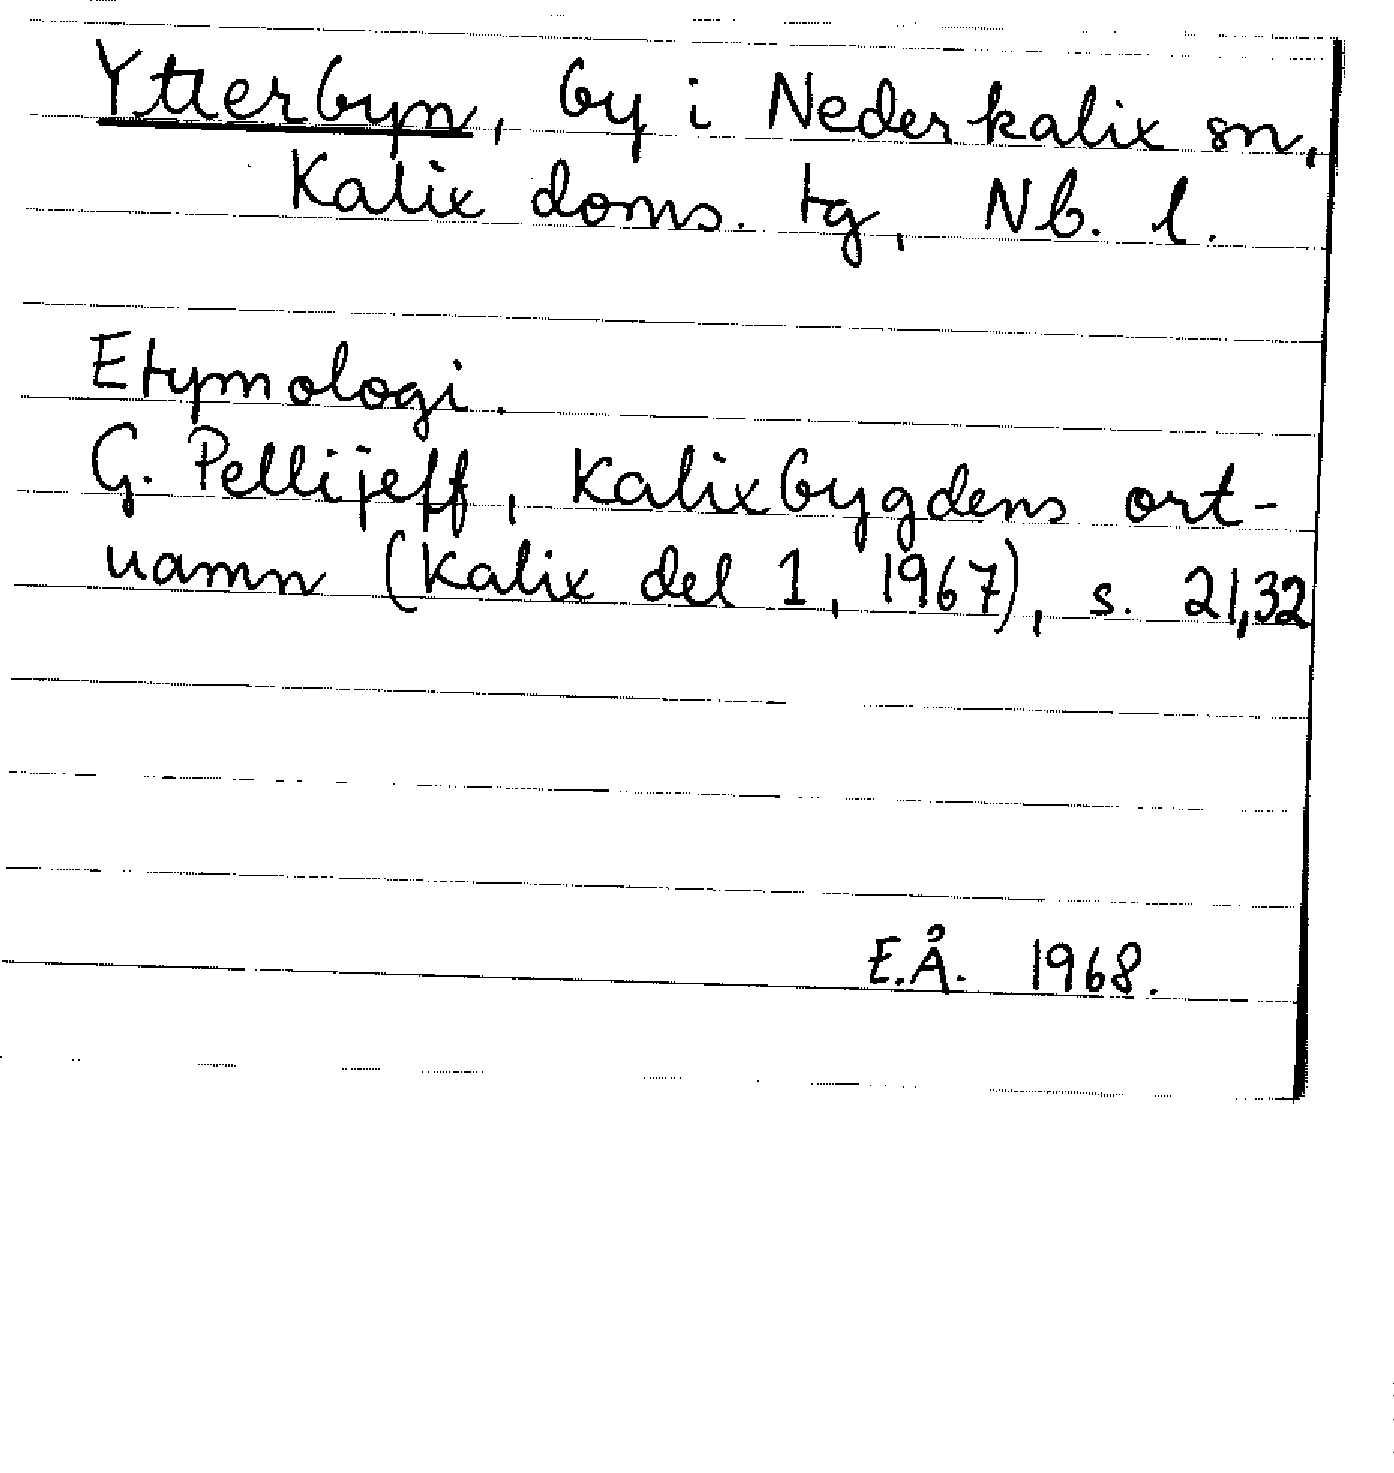 Ytterbyn, by i Nederkalix sn,
Kalix doms. tg, Nb. l.
Etymologi.
G. Pellijeff, Kalixbygdens ort-
namn (Kalix del 1, 1967), s. 21,32
E.Å. 1968.